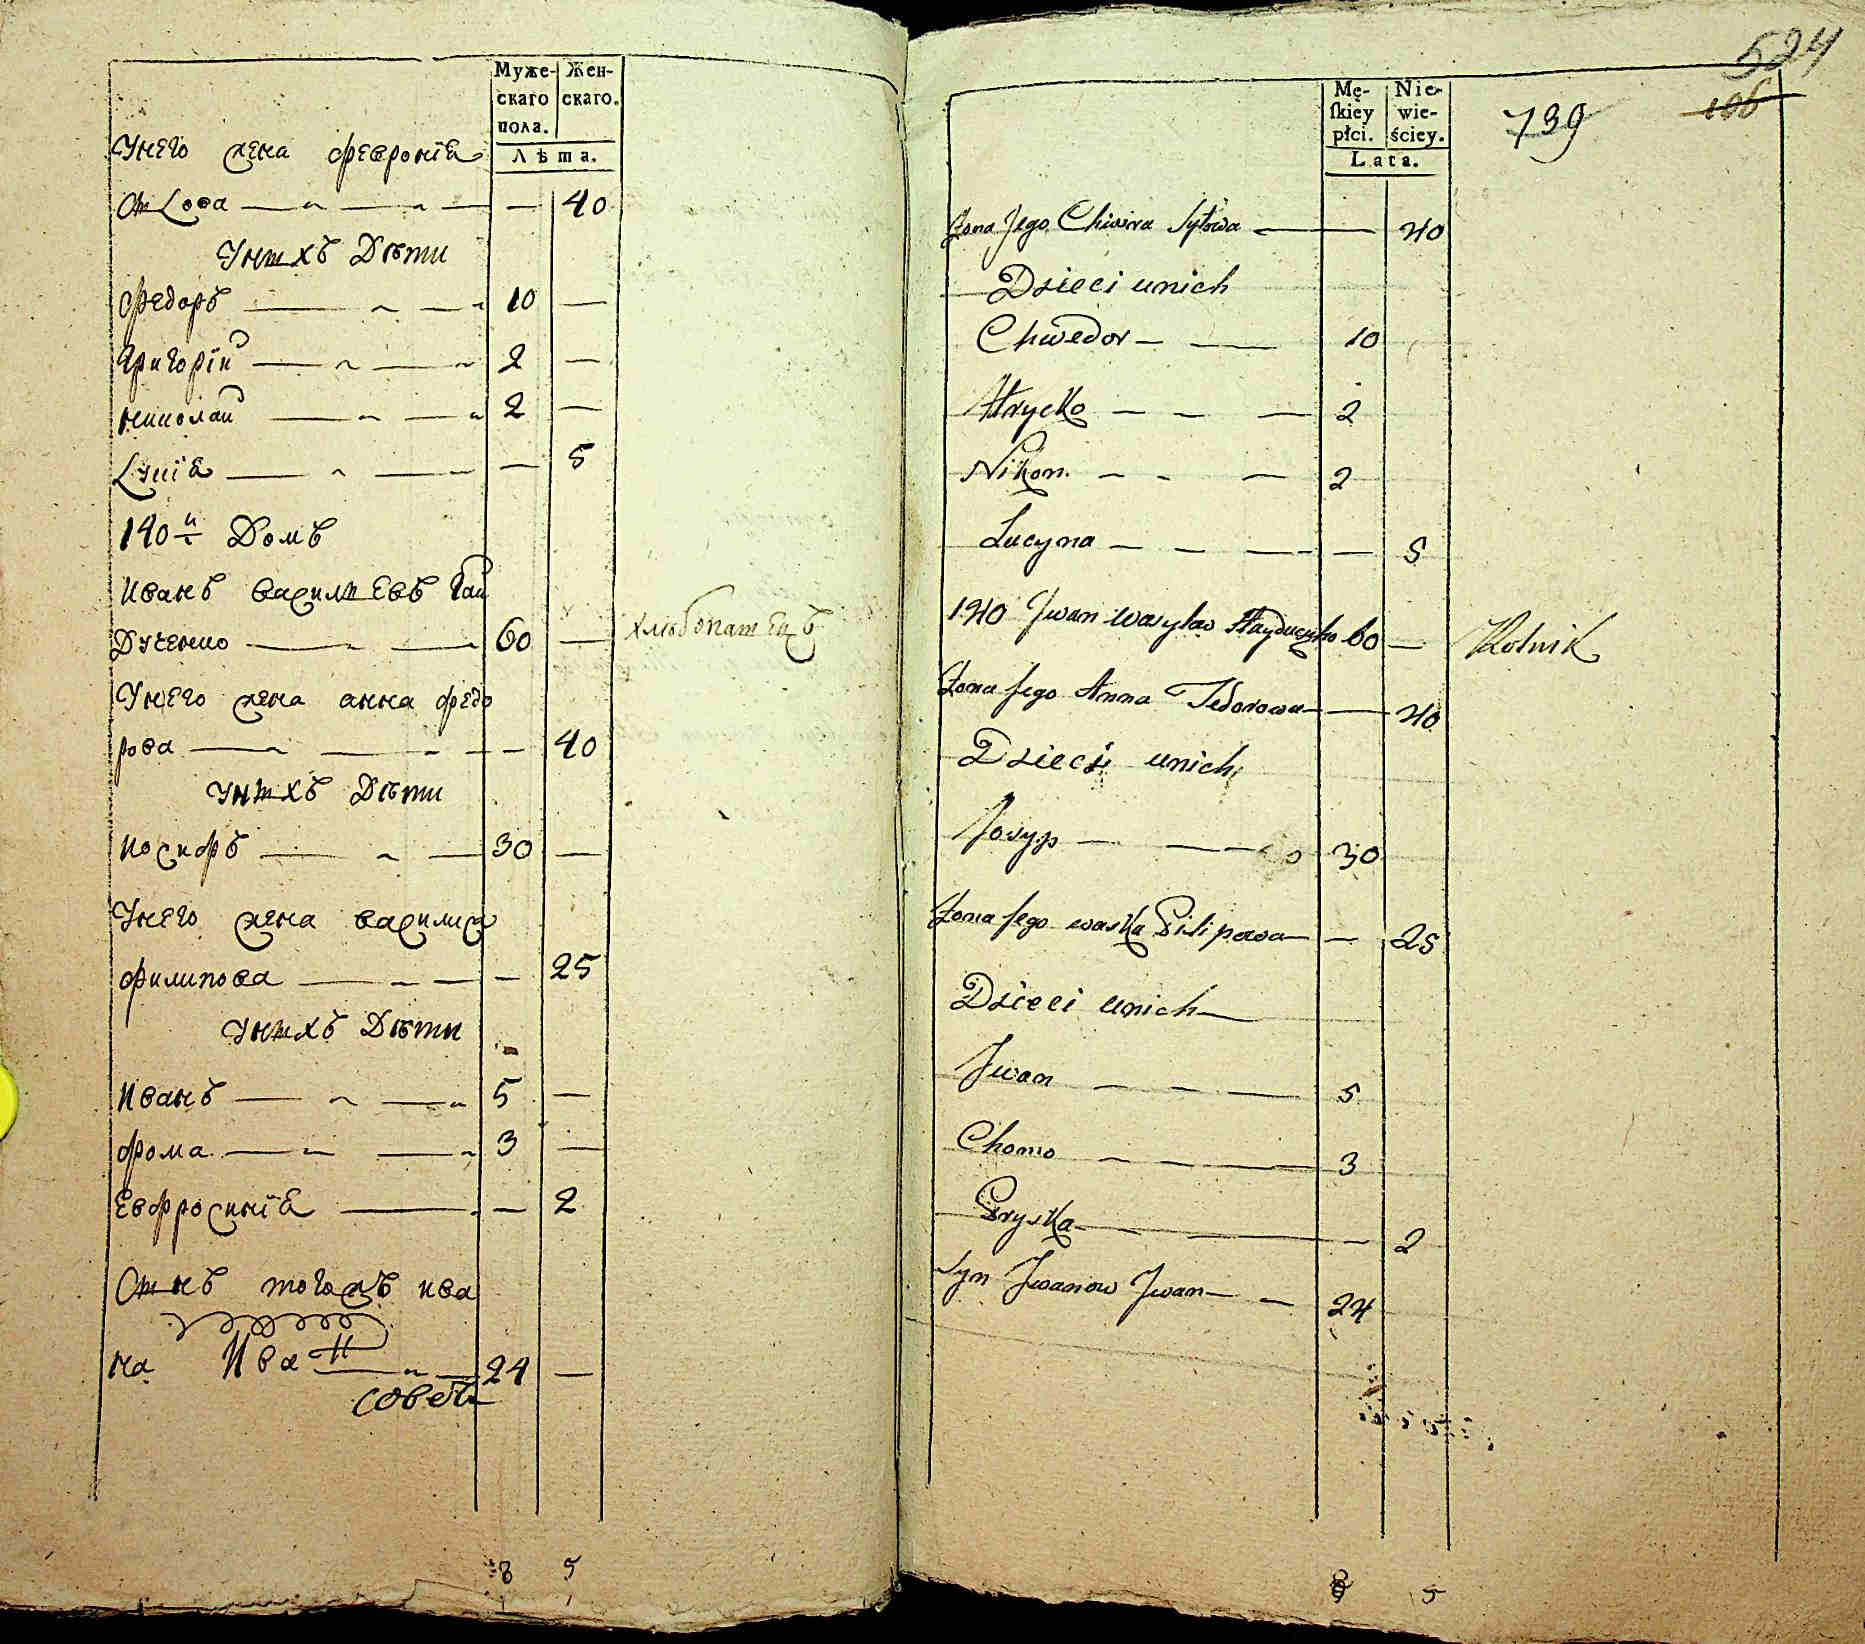 Муже- Жен-
скаго скаго.
пола.
Лѣта.
Унего жена феврониѣ
— 40
Унихъ Дѣти
Федоръ 10 —
Григорій 2 —
николай 2 —
Луциѣ — 5
140й Домъ
Иванъ василіевъ Гай
дученко 60 — хлѣбопашецъ
Унего жена анна федо
рова — 40
Унихъ Дѣти
иосифъ 30 —
Унего жена василиса
филипова — 25
Унихъ Дѣти
Иванъ 5 —
фома 3 —
Евфросиниѣ — 2
тогожъ ива
на Иван 24 —
совет
8 5
524
106
139
Mę- Nie-
ſkiey wie-
płci. ściey.
Lata.
Zona Jego Chiwra Sytowa — 40
Dzieci unich
Chwedor 10
Hrycko 2
Nikon 2
Lucyna — 5
140 Jwan wasylow Hayduczko 60 — Rolnik
Zona Jego Anna Fedorowa — 40
Dzieci unich
Josyp 30
Zona Jego waska Pilipowa — 25
Dzieci unich
Jwan 5
Chomo 3
Pryska — 2
Syn Jwanow Jwan 24
8 5